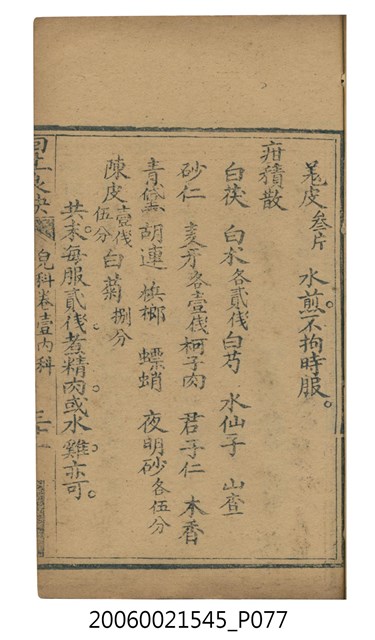 薑皮叁片 水煎不拘時服。
疳積散
白茯 白朮各貳錢 白芍 水仙子 山查
砂仁 麦牙各壹錢 柯子肉 君子仁 木香
青黛 胡連 檳榔 螵蛸 夜明砂各五分
陳皮壹錢伍分 白菊捌分
共末。每服貳錢。煮精肉或水雞亦可。
回生良訣 兒科卷壹內科
20060021545_P077